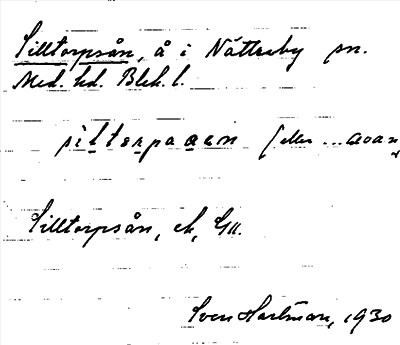 Silltorpsån, å i Nättraby sn.
Med. hd. Blek. l.
silterpaaen (eller ...aoan
Silltorpsån, ek, GU.
Sven Hartman, 1930